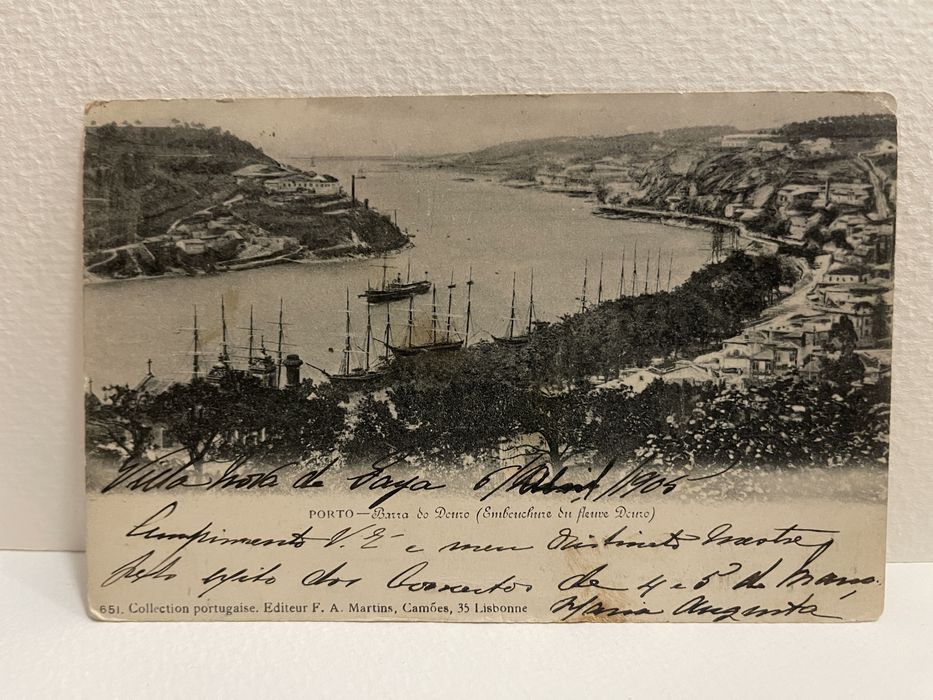 Villa Nova de Gaya 6/Abril/1905
PORTO — Barra do Douro (Embouchure du fleuve Douro)
Cumprimento V. Eª e meu distincto Maestre
pelo exito dos Concertos de 4 e 5 de Março.
651. Collection portugaise. Editeur F. A. Martins, Camões, 35 Lisbonne
Maria Augusta